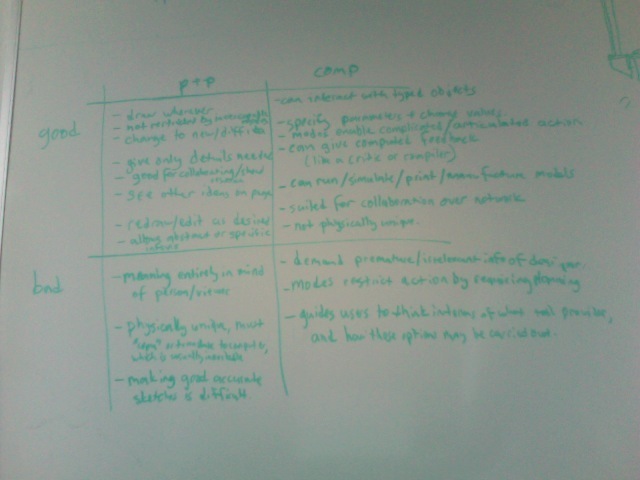 p+p
comp
good
- draw wherever
- not restricted by
- change to new/diff idea
- give only details needed
- good for collaborating/show
- see other ideas on page
- redraw/edit as desired
- allows abstract or specific
- can interact with typed objects
- specify parameters + change values
- modes enable complicated/articulated action
- can give computed feedback
(like a critic or compiler)
- can run/simulate/print/manufacture models
- suited for collaboration over network
- not physically unique.
bad
- meaning entirely in mind
of person/viewer
- physically unique, must
or to computer,
which is usually
- making good accurate
sketches is difficult
- demand premature/irrelevant info of designer.
- modes restrict action by requiring planning
- guides users to think in terms of what tool provides,
and how those options may be carried out.